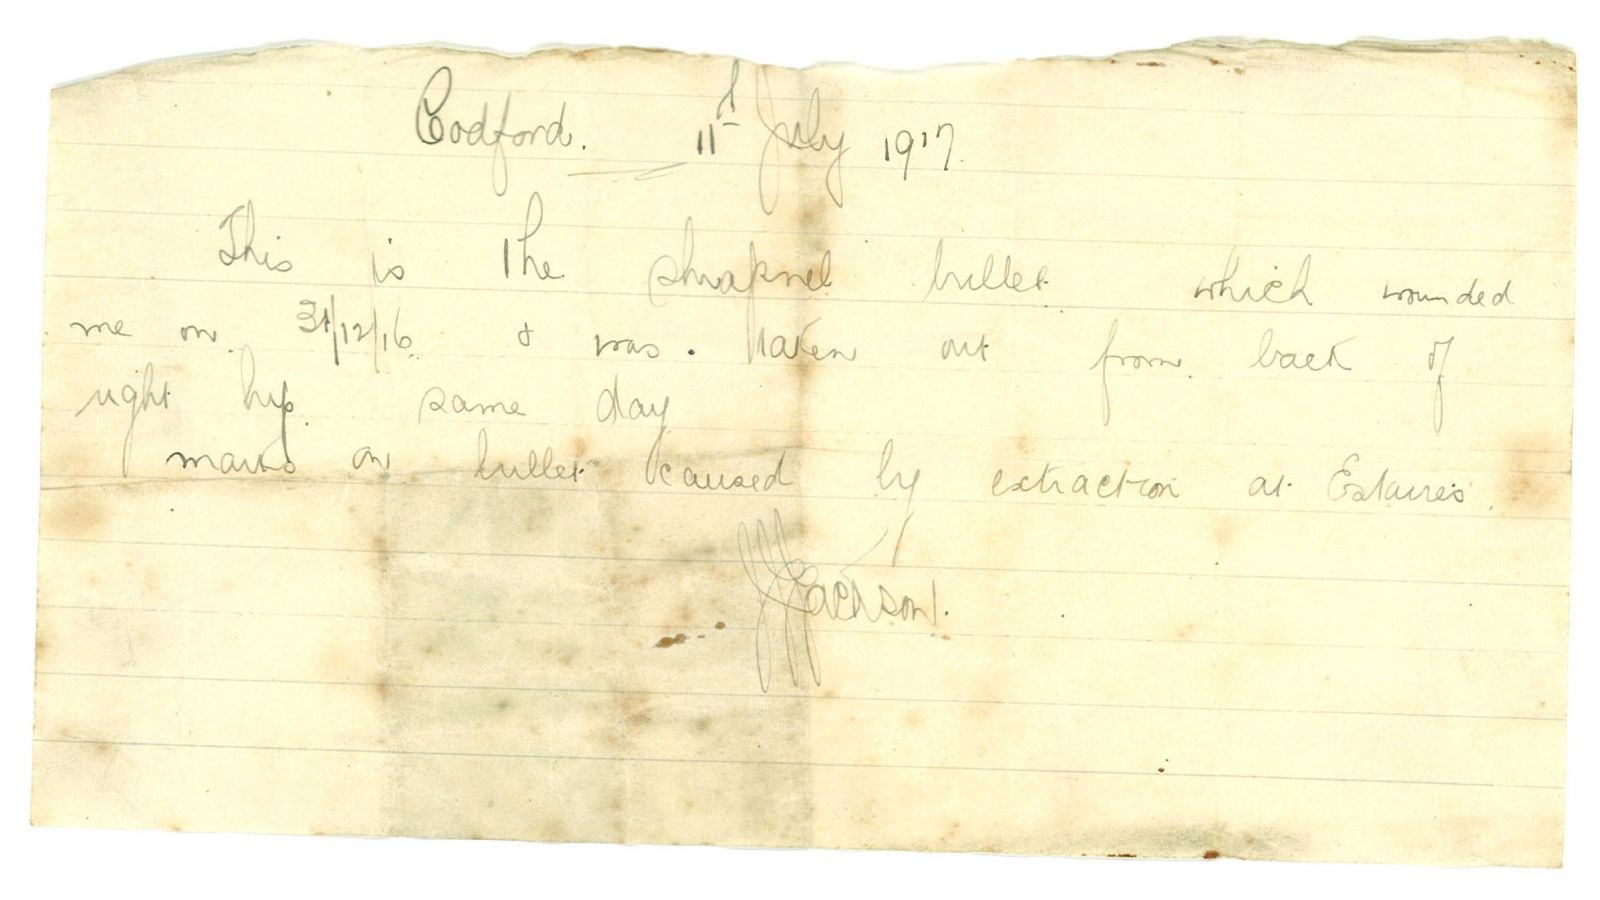 Codford. 11th July 1917.
This is the shrapnel bullet which wounded
me on 31/12/16 & was. taken out from back of
right hip same day
marks on bullet caused by extraction at Estaires.
Jackson.